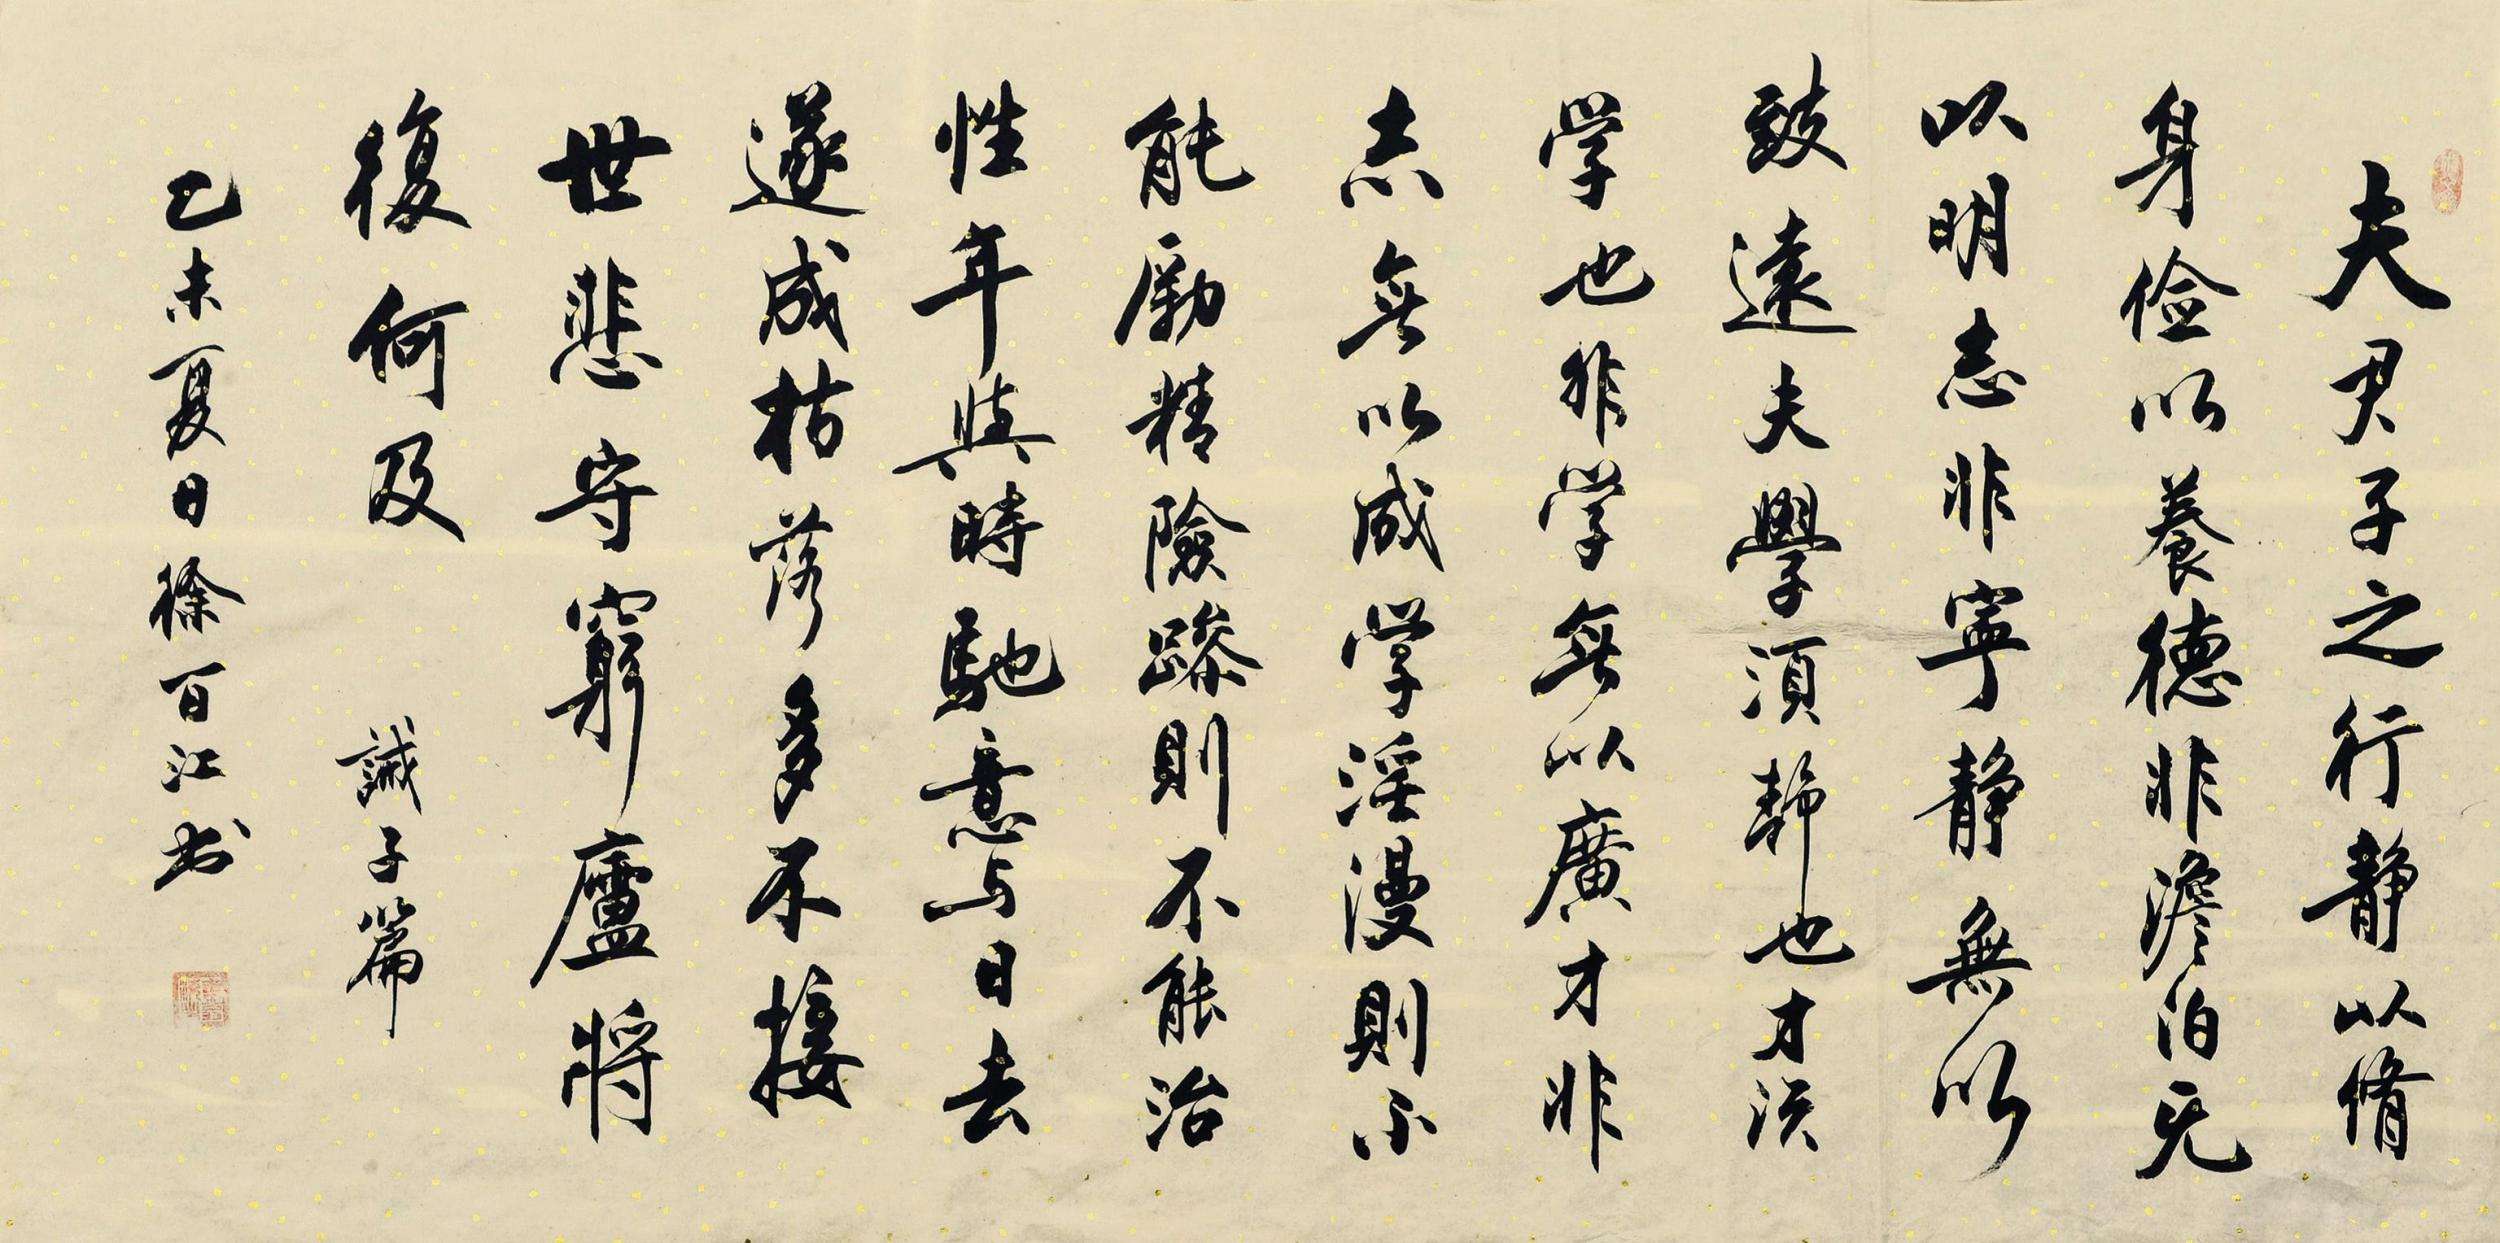 夫君子之行静以脩
身俭以養德非澹泊无
以明志非寧静無以
致遠夫學須静也才须
学也非学無以廣才非
志無以成学淫漫則不
能励精險躁則不能治
性年與時馳意与日去
遂成枯落多不接
世悲守窮廬將
復何及 誡子篇
乙未夏日徐百江书